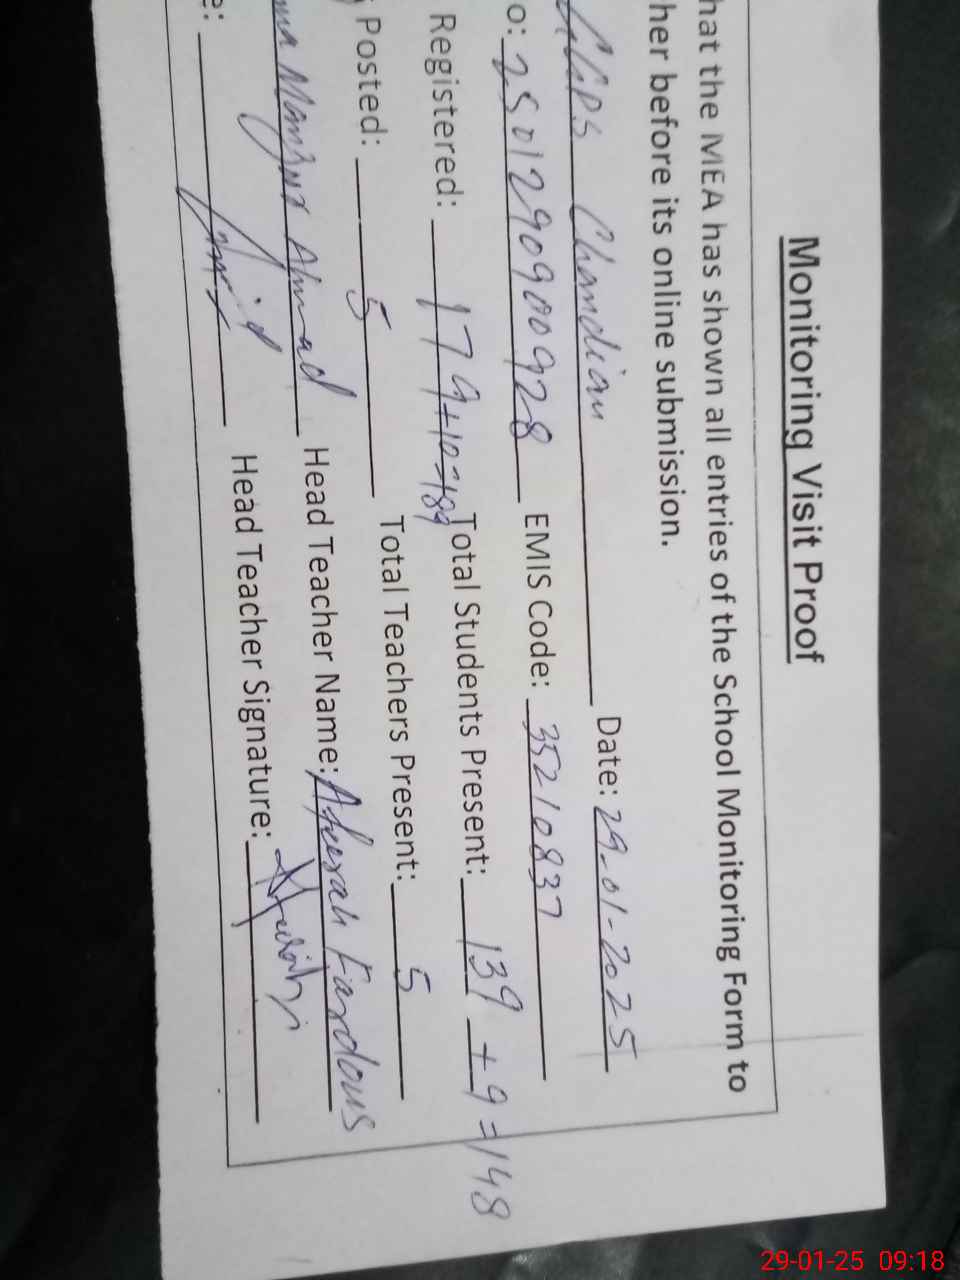 Monitoring Visit Proof
hat the MEA has shown all entries of the School Monitoring Form to
her before its online submission.
GGPS Chandian Date: 29-01-2025
o: 2501290900928 EMIS Code: 35210837
Registered: 179+10=189 Total Students Present: 139+9=148
Posted: 5 Total Teachers Present: 5
Manzur Ahmad Head Teacher Name: Fardous
e: Head Teacher Signature:
29-01-25 09:18